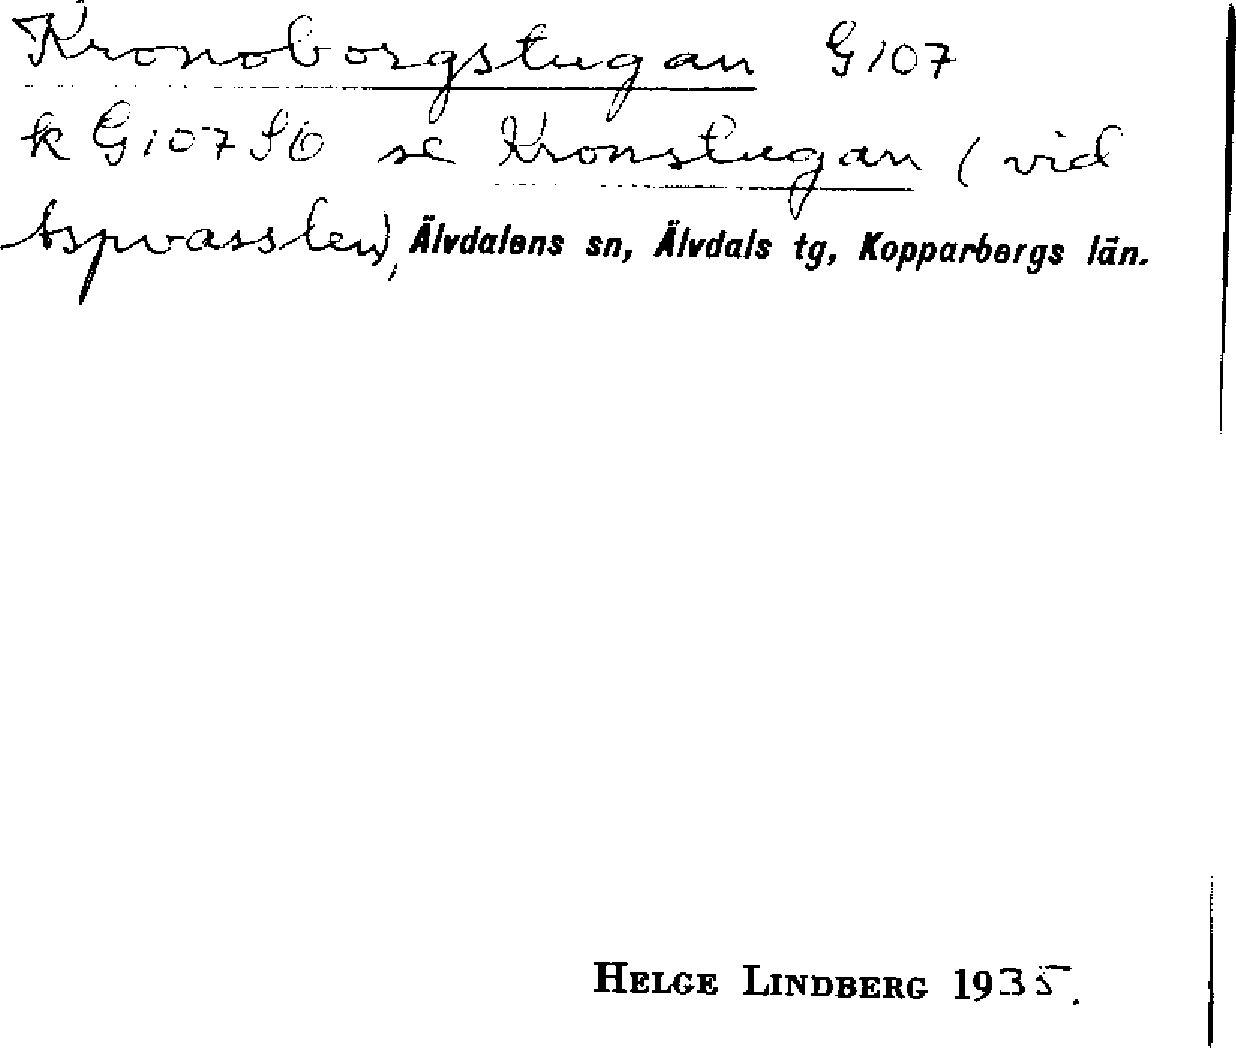 Kronoborgstugan G107
k G107 SO se Kronstugan (vid
Aspvasslen), Älvdalens sn, Älvdals tg, Kopparbergs län.
HELGE LINDBERG 1935.